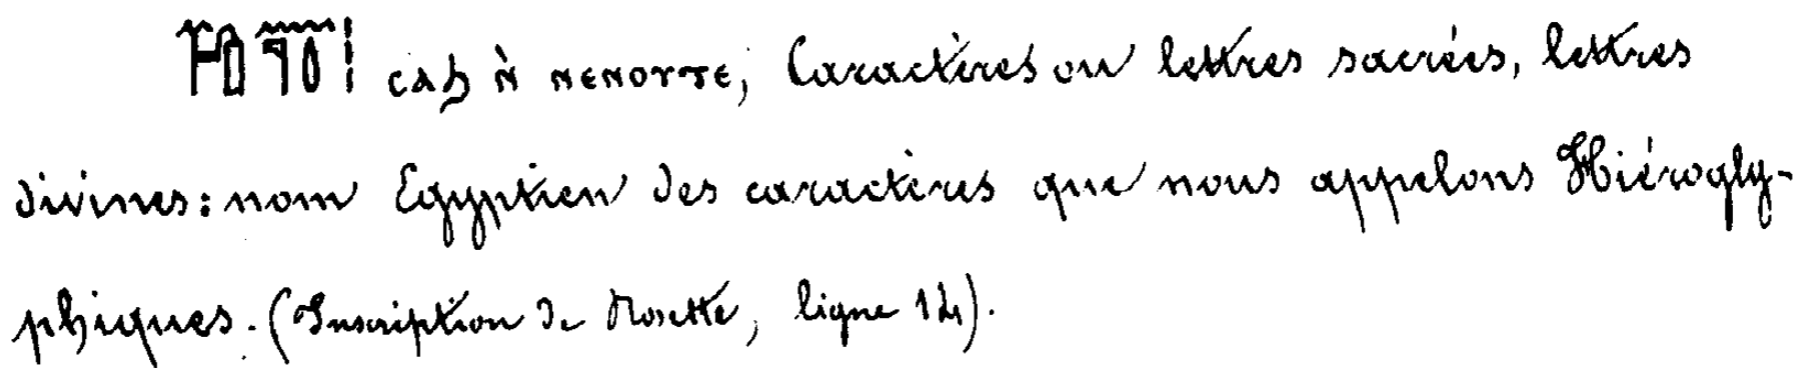 ⲥⲁϧ ⲛ̀ ⲛⲉⲛⲟⲩⲧⲉ, Caractères ou lettres sacrées, lettres
divines: nom Egyptien des caractères que nous appelons Hiérogly-
phiques. (Inscription de Rosette, ligne 14).